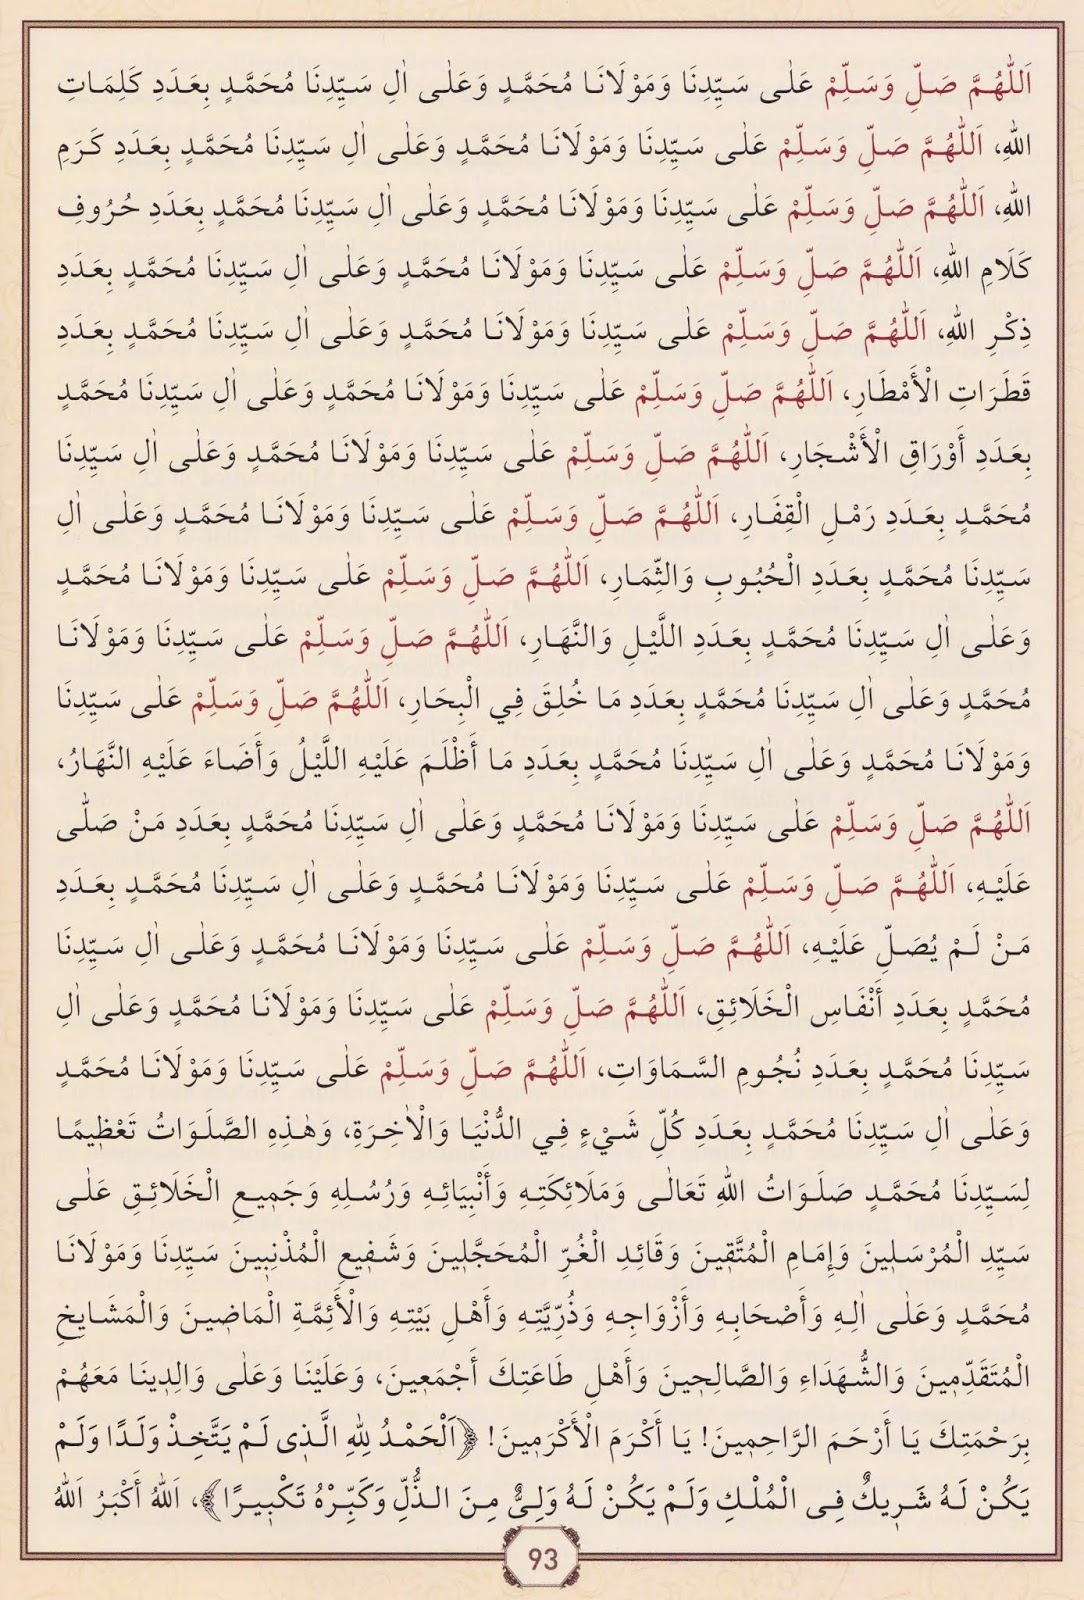 اَللّٰهُمَّ صَلِّ وَسَلِّمْ عَلٰى سَيِّدِنَا وَمَوْلَانَا مُحَمَّدٍ وَعَلٰى اٰلِ سَيِّدِنَا مُحَمَّدٍ بِعَدَدِ كَلِمَاتِ
اللهِ، اَللّٰهُمَّ صَلِّ وَسَلِّمْ عَلٰى سَيِّدِنَا وَمَوْلَانَا مُحَمَّدٍ وَعَلٰى اٰلِ سَيِّدِنَا مُحَمَّدٍ بِعَدَدِ كَرَمِ
اللهِ، اَللّٰهُمَّ صَلِّ وَسَلِّمْ عَلٰى سَيِّدِنَا وَمَوْلَانَا مُحَمَّدٍ وَعَلٰى اٰلِ سَيِّدِنَا مُحَمَّدٍ بِعَدَدِ حُرُوفِ
كَلَامِ اللهِ، اَللّٰهُمَّ صَلِّ وَسَلِّمْ عَلٰى سَيِّدِنَا وَمَوْلَانَا مُحَمَّدٍ وَعَلٰى اٰلِ سَيِّدِنَا مُحَمَّدٍ بِعَدَدِ
ذِكْرِ اللهِ، اَللّٰهُمَّ صَلِّ وَسَلِّمْ عَلٰى سَيِّدِنَا وَمَوْلَانَا مُحَمَّدٍ وَعَلٰى اٰلِ سَيِّدِنَا مُحَمَّدٍ بِعَدَدِ
قَطَرَاتِ الْأَمْطَارِ، اَللّٰهُمَّ صَلِّ وَسَلِّمْ عَلٰى سَيِّدِنَا وَمَوْلَانَا مُحَمَّدٍ وَعَلٰى اٰلِ سَيِّدِنَا مُحَمَّدٍ
بِعَدَدِ أَوْرَاقِ الْأَشْجَارِ، اَللّٰهُمَّ صَلِّ وَسَلِّمْ عَلٰى سَيِّدِنَا وَمَوْلَانَا مُحَمَّدٍ وَعَلٰى اٰلِ سَيِّدِنَا
مُحَمَّدٍ بِعَدَدِ رَمْلِ الْقِفَارِ، اَللّٰهُمَّ صَلِّ وَسَلِّمْ عَلٰى سَيِّدِنَا وَمَوْلَانَا مُحَمَّدٍ وَعَلٰى اٰلِ
سَيِّدِنَا مُحَمَّدٍ بِعَدَدِ الْحُبُوبِ وَالثِّمَارِ، اَللّٰهُمَّ صَلِّ وَسَلِّمْ عَلٰى سَيِّدِنَا وَمَوْلَانَا مُحَمَّدٍ
وَعَلٰى اٰلِ سَيِّدِنَا مُحَمَّدٍ بِعَدَدِ اللَّيْلِ وَالنَّهَارِ، اَللّٰهُمَّ صَلِّ وَسَلِّمْ عَلٰى سَيِّدِنَا وَمَوْلَانَا
مُحَمَّدٍ وَعَلٰى اٰلِ سَيِّدِنَا مُحَمَّدٍ بِعَدَدِ مَا خُلِقَ فِي الْبِحَارِ، اَللّٰهُمَّ صَلِّ وَسَلِّمْ عَلٰى سَيِّدِنَا
وَمَوْلَانَا مُحَمَّدٍ وَعَلٰى اٰلِ سَيِّدِنَا مُحَمَّدٍ بِعَدَدِ مَا أَظْلَمَ عَلَيْهِ اللَّيْلُ وَأَضَاءَ عَلَيْهِ النَّهَارُ،
اَللّٰهُمَّ صَلِّ وَسَلِّمْ عَلٰى سَيِّدِنَا وَمَوْلَانَا مُحَمَّدٍ وَعَلٰى اٰلِ سَيِّدِنَا مُحَمَّدٍ بِعَدَدِ مَنْ صَلّٰى
عَلَيْهِ، اَللّٰهُمَّ صَلِّ وَسَلِّمْ عَلٰى سَيِّدِنَا وَمَوْلَانَا مُحَمَّدٍ وَعَلٰى اٰلِ سَيِّدِنَا مُحَمَّدٍ بِعَدَدِ
مَنْ لَمْ يُصَلِّ عَلَيْهِ، اَللّٰهُمَّ صَلِّ وَسَلِّمْ عَلٰى سَيِّدِنَا وَمَوْلَانَا مُحَمَّدٍ وَعَلٰى اٰلِ سَيِّدِنَا
مُحَمَّدٍ بِعَدَدِ أَنْفَاسِ الْخَلَائِقِ، اَللّٰهُمَّ صَلِّ وَسَلِّمْ عَلٰى سَيِّدِنَا وَمَوْلَانَا مُحَمَّدٍ وَعَلٰى اٰلِ
سَيِّدِنَا مُحَمَّدٍ بِعَدَدِ نُجُومِ السَّمَاوَاتِ، اَللّٰهُمَّ صَلِّ وَسَلِّمْ عَلٰى سَيِّدِنَا وَمَوْلَانَا مُحَمَّدٍ
وَعَلٰى اٰلِ سَيِّدِنَا مُحَمَّدٍ بِعَدَدِ كُلِّ شَيْءٍ فِي الدُّنْيَا وَالْاٰخِرَةِ، وَهٰذِهِ الصَّلَوَاتُ تَعْظِيمًا
لِسَيِّدِنَا مُحَمَّدٍ صَلَوَاتُ اللهِ تَعَالٰى وَمَلَائِكَتِهِ وَأَنْبِيَائِهِ وَرُسُلِهِ وَجَمِيعِ الْخَلَائِقِ عَلٰى
سَيِّدِ الْمُرْسَلِينَ وَإِمَامِ الْمُتَّقِينَ وَقَائِدِ الْغُرِّ الْمُحَجَّلِينَ وَشَفِيعِ الْمُذْنِبِينَ سَيِّدِنَا وَمَوْلَانَا
مُحَمَّدٍ وَعَلٰى اٰلِهِ وَأَصْحَابِهِ وَأَزْوَاجِهِ وَذُرِّيَّتِهِ وَأَهْلِ بَيْتِهِ وَالْأَئِمَّةِ الْمَاضِينَ وَالْمَشَايِخِ
الْمُتَقَدِّمِينَ وَالشُّهَدَاءِ وَالصَّالِحِينَ وَأَهْلِ طَاعَتِكَ أَجْمَعِينَ، وَعَلَيْنَا وَعَلٰى وَالِدِينَا مَعَهُمْ
بِرَحْمَتِكَ يَا أَرْحَمَ الرَّاحِمِينَ! يَا أَكْرَمَ الْأَكْرَمِينَ! ﴿اَلْحَمْدُ لِلّٰهِ الَّذِى لَمْ يَتَّخِذْ وَلَدًا وَلَمْ
يَكُنْ لَهُ شَرِيكٌ فِى الْمُلْكِ وَلَمْ يَكُنْ لَهُ وَلِىٌّ مِنَ الذُّلِّ وَكَبِّرْهُ تَكْبِيرًا﴾، اَللهُ أَكْبَرُ اَللهُ
93